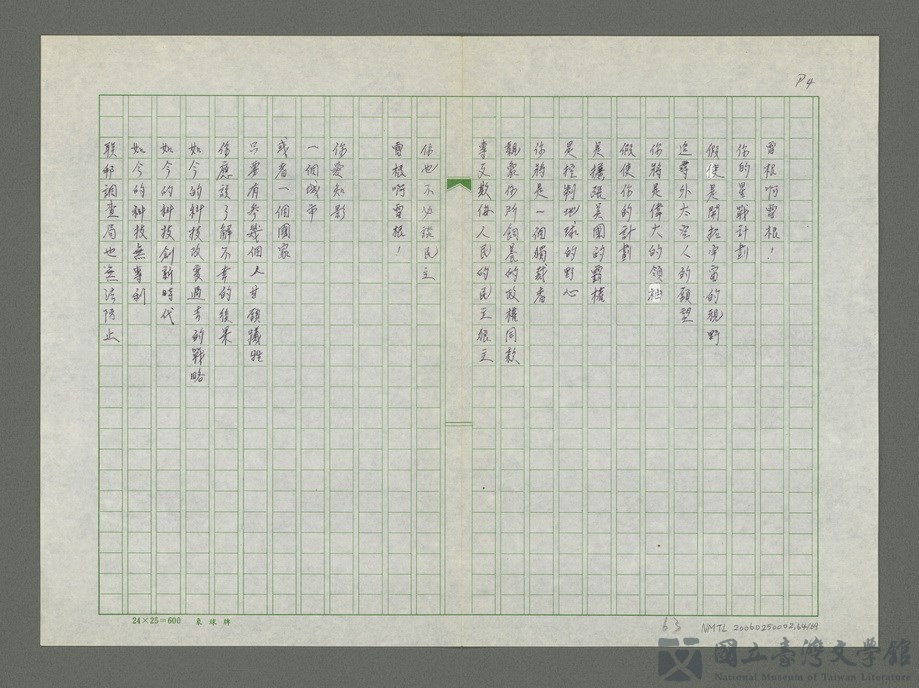 P4
雷根啊雷根！
你的星戰計劃
假使是開拓宇宙的視野
追尋外太空人的願望
你將是偉大的領袖
假使你的計劃
是擴張美國的霸權
是控制地球的野心
你將是一個獨裁者
親蒙你所飼養的政權同款
專文欺侮人民的民主假主
你也不必談民主
雷根啊雷根！
你愛知影
一個城市
或者一個國家
只要有參幾個人甘願犧牲
你應該了解不幸的後果
如今的科技改變過去的戰略
如今的科技創新時代
如今的科技無專利
聯邦調查局也無法阻止
24×25=600 象球牌
63
NMTL 20060250002,64/69
國立臺灣文學館
National Museum of Taiwan Literature